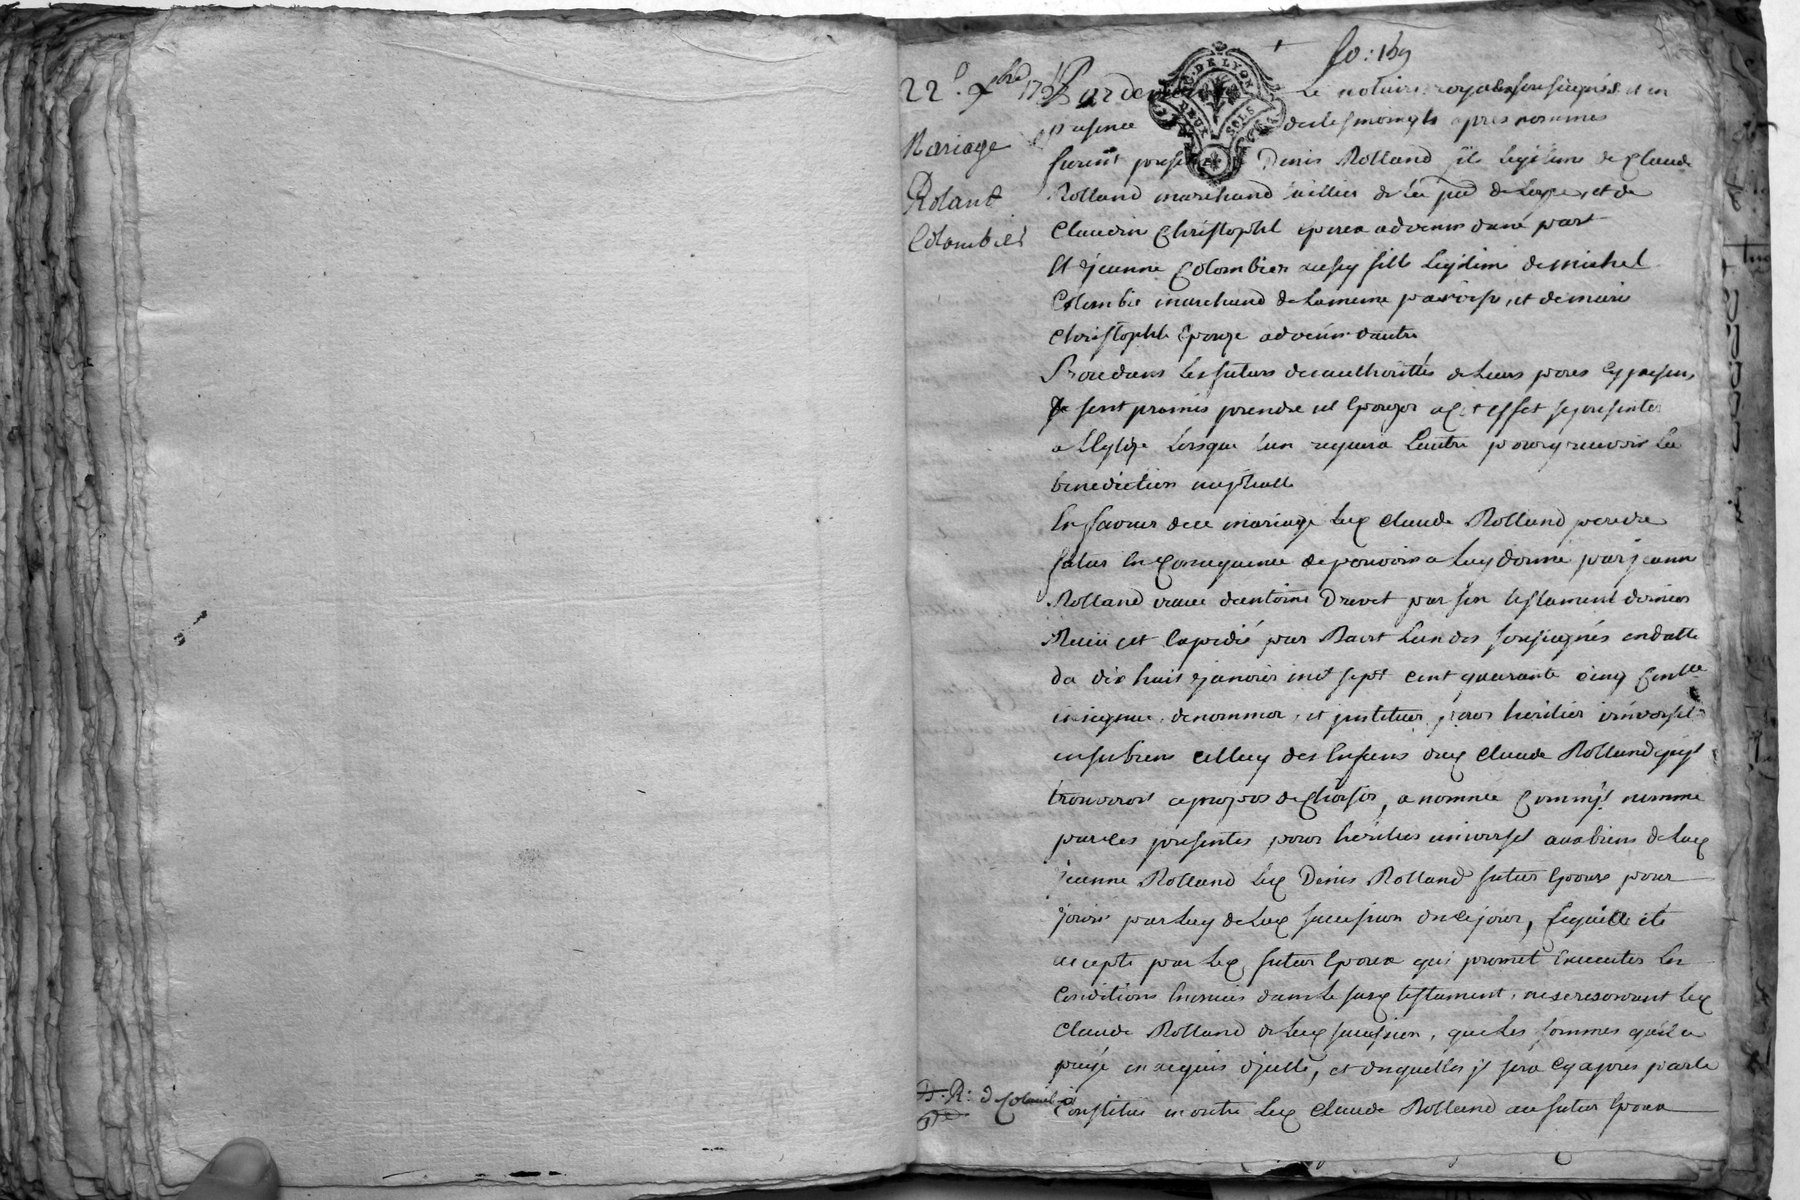 fo: 159
22e Xbre 17
Mariage
Rolant
Colombier
Pardevant Le notaire royal soussignés et en
presence des tesmoingts apres nommés
furent presents Denis Rolland fils legitime de Claude
Rolland marchand taillier de La et de
Claudin Christophle epoux advenir dune part
Et jeanne Colombier aussy fille Legitime de michel
Colombie marchand de Lameme paroisse, et demarie
Christophle Epouze advenir dautre
Procedans Les futurs de authorittés de Leurs peres cy presens
se sont promis prendre et Epouzer a cet effet se presenter
a LEglize Lorsque Lun requera Lautre pour y recevoir La
benediction nuptialle
En faveur de ce mariage Led Claude Rolland pere du
futur En Consequence de pouvoir a Luy donné par jeanne
Rolland veuve dantoine Drevet par son testament dernier
Receu et Expedié par Lun des soussignés en datte
du dix huit janvier mil sept cent quarante cinq
insignué, de nommer, et jnstituer pour heritier universel
en ses biens celluy des Enfans dud Claude Rolland quil
trouveroit apropos de Choisir, a nommé Comm'jl nomme
par ces presentes pour heritier universel aux biens de Lad
jeanne Rolland Led Denis Rolland futur Epoux pour
jouir par Luy de Lad succession des ce jour, Laquelle été
accepté par Led futur Epoux qui promet Executer Les
Conditions Enoncés dans Le susd testament, ne se reservant Led
Claude Rolland de Lad succession, que Les sommes quil a
payé en acquis djcelle, et desquelles jl sera cy apres parlé
D. R: d Colombié
Constitue en outre Led Claude Rolland au futur Epoux
G. DE LYON
DEUX SOLS